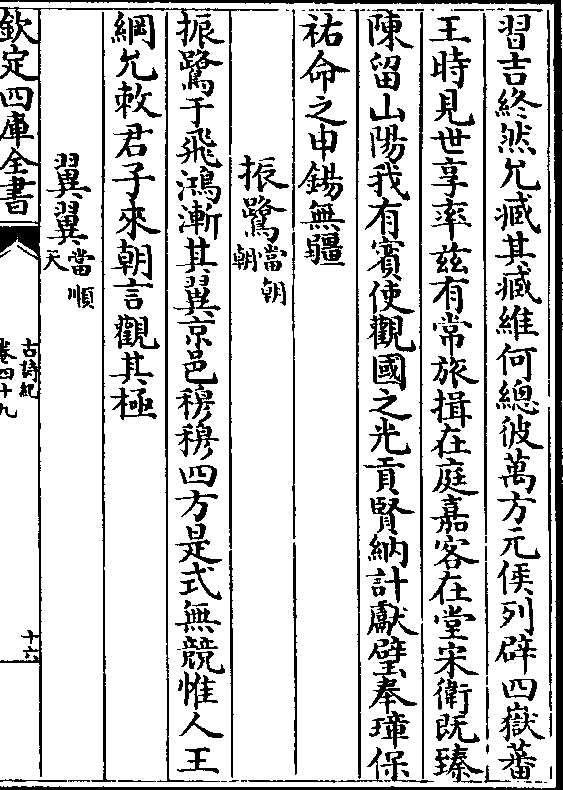 習吉終然允臧其臧維何總彼萬方元侯列辟四嶽蕃
王時見世享率兹有常旅揖在庭嘉客在堂宋衛既臻
陳留山陽我有賓使觀國之光貢賢納計獻璧奉璋保
祐命之申錫無疆
振鷺當朝朝
振鷺于飛鴻漸其翼京邑穆穆四方是式無競惟人王
綱允敕君子來朝言觀其極
翼翼當順天
欽定四庫全書
古詩紀
卷四十九
十六